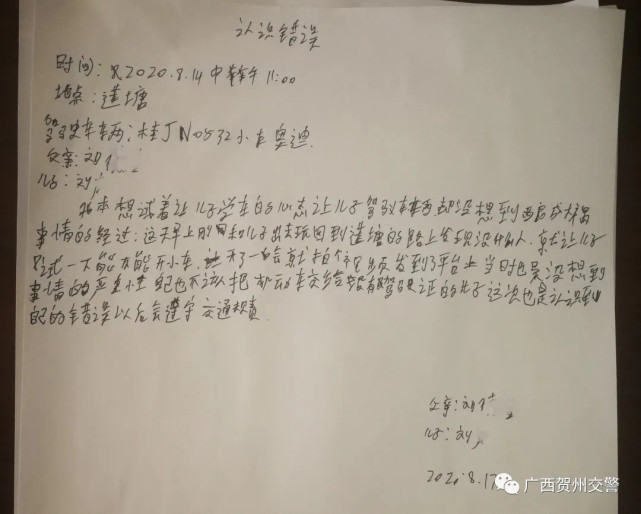 认识错误
时间:2020.8.14中午11:00
地点:莲塘
驾驶车辆:桂J N0532小车奥迪
父亲:刘
儿子:刘
我本想试着让儿子学车的心态让儿子驾驶车辆却没想到
事情的经过:这天早上我和儿子出去玩回到莲塘的路上发现没什么人,就让儿子
试一下能不能开小车,开了一会就拍个视频发到了平台上当时也是没想到
事情的严重性 也不该把机动车交给没有驾驶证的儿子这次也是认识到
自己的错误以后会遵守交通规责
父亲:刘
儿子:刘
2020.8.17
广西贺州交警